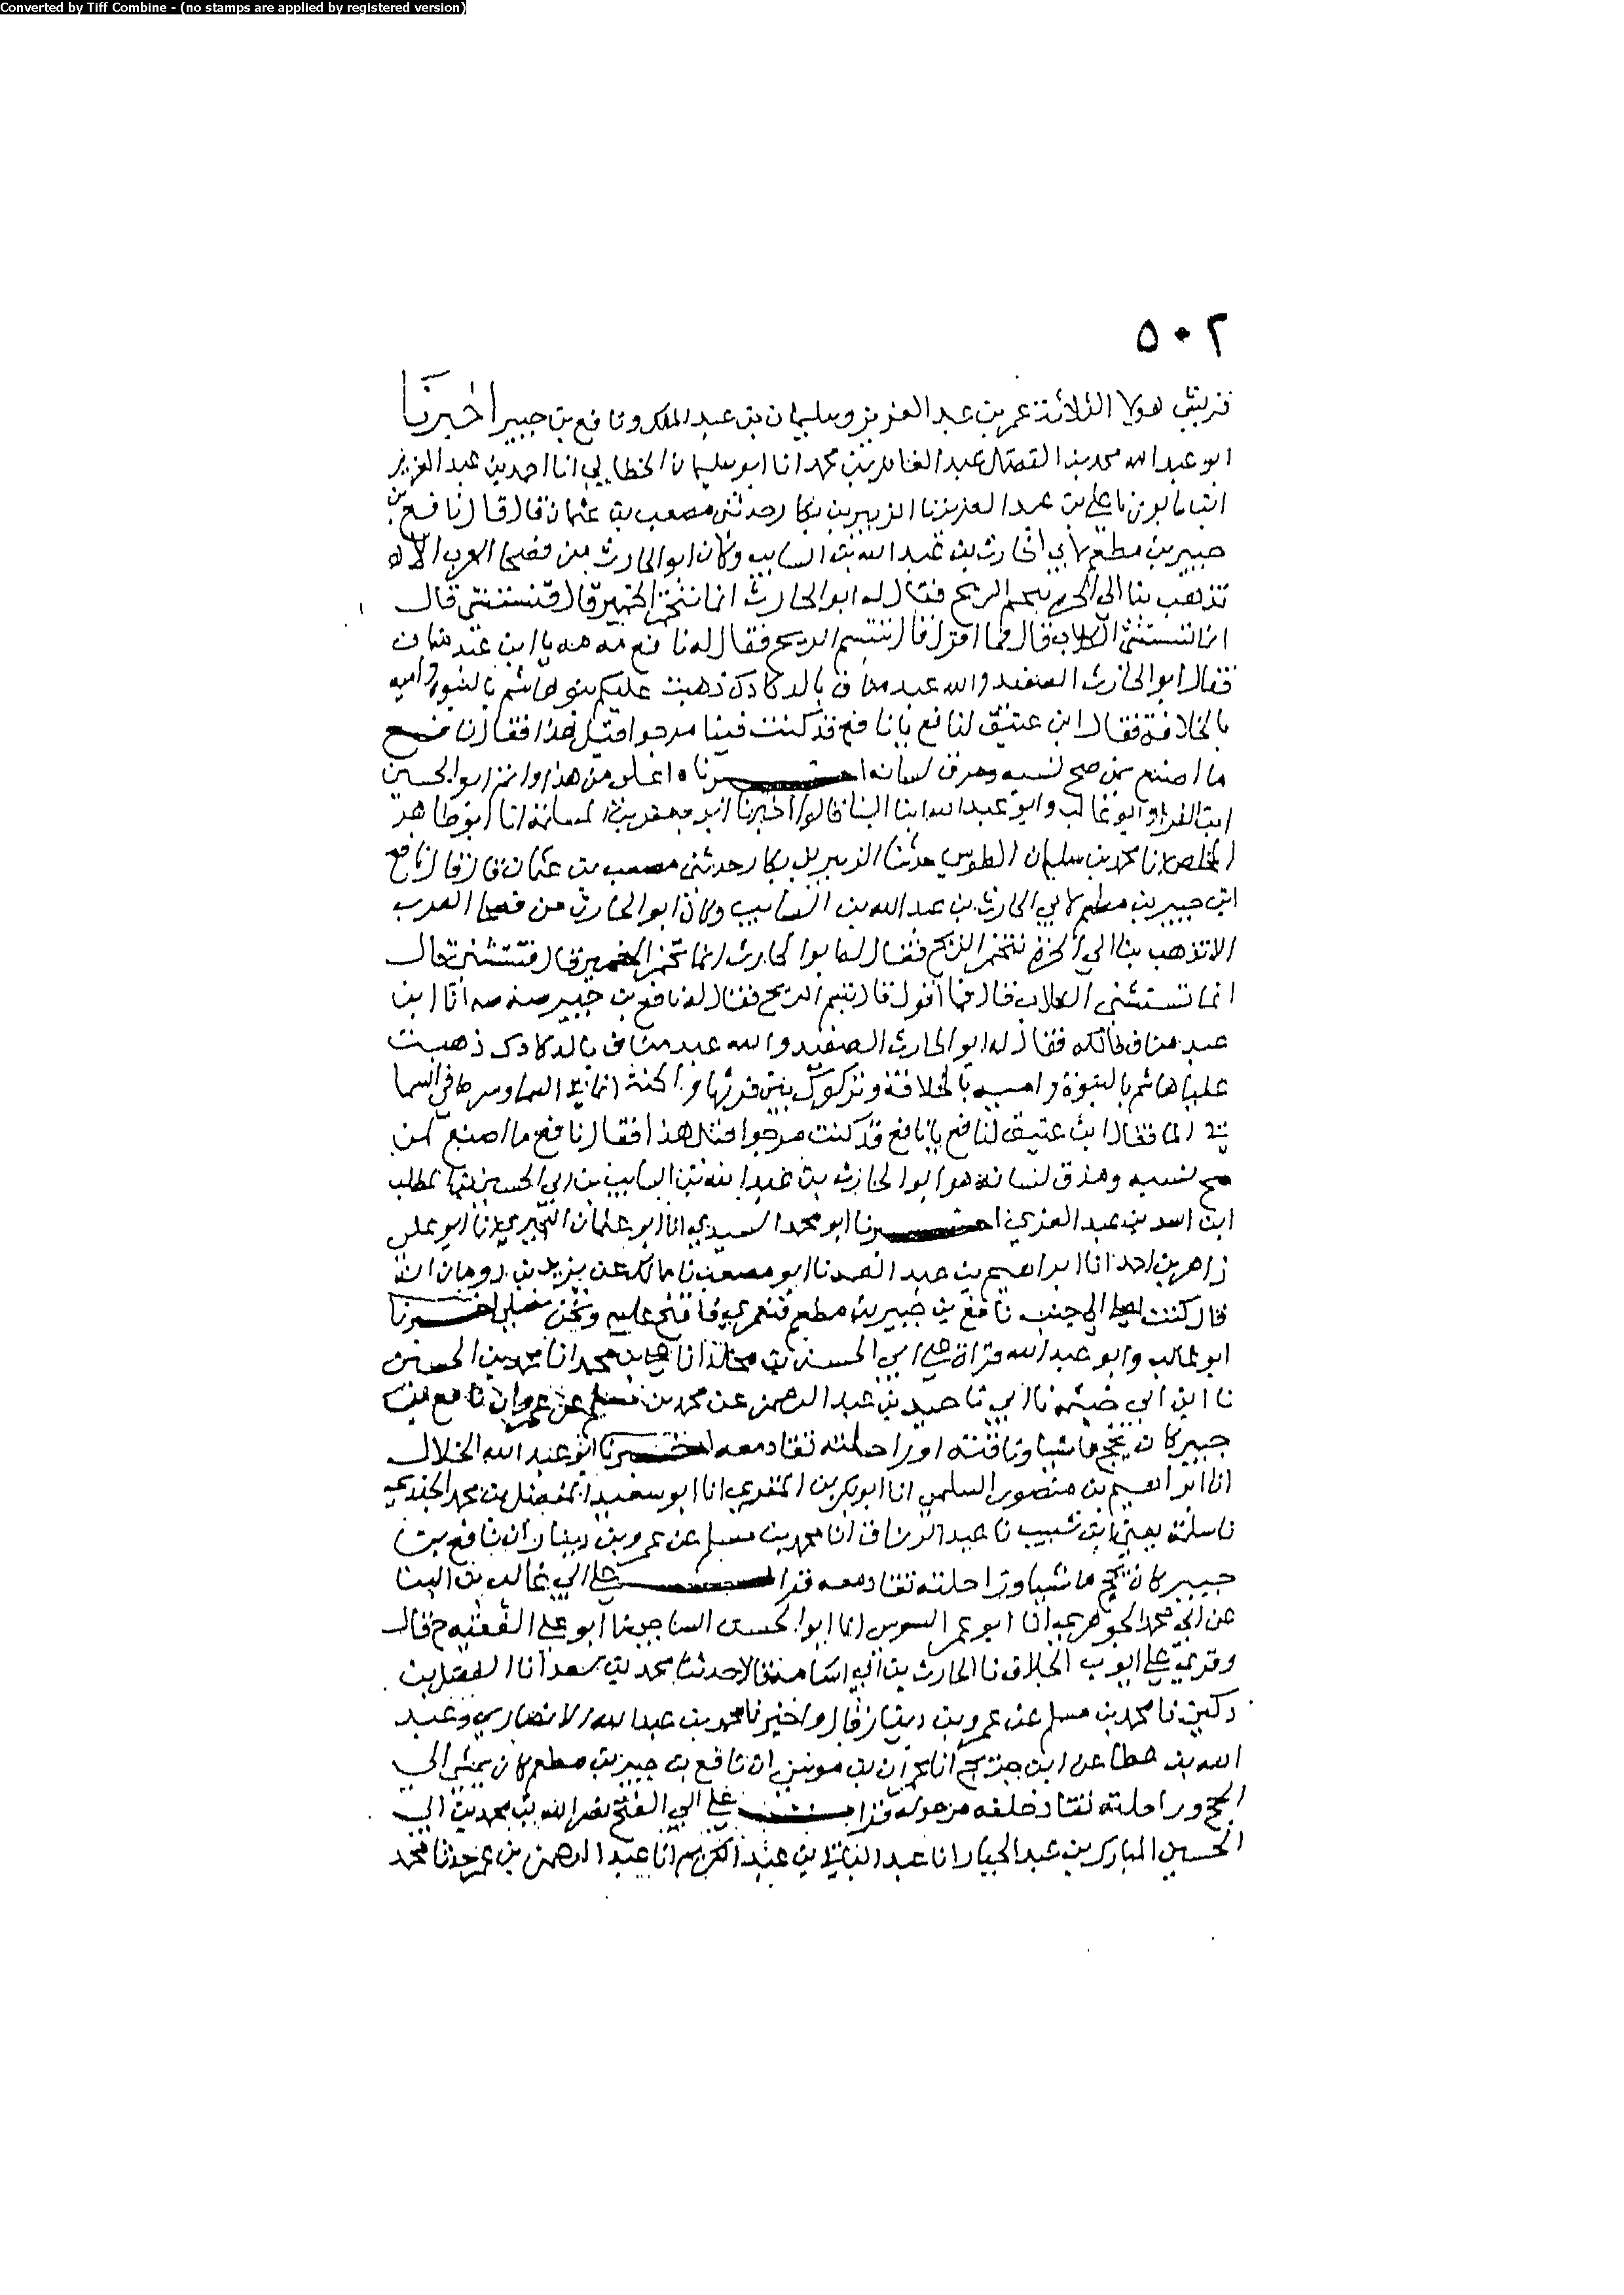 Converted by Tiff Combine - (no stamps are applied by registered version)
٥٠٢
قريش هولا الثلاثة عمر بن عبد العزيز وسليمان بن عبد الملك ونافع بن جبير اخبرنا
ابو عبد الله محمد بن الفضل عبد الغافر بن محمد انا ابو سليمان الخطابي انا احمد بن عبد العزيز
نا علي بن عبد العزيز نا الزبير بن بكار حدثني مصعب بن عثمان قال قال نافع بن
جبير بن مطعم لابي الحارث بن عبد الله بن السايب وكان ابو الحارث من فصحا العرب الا
تذهب بنا الي الحرة الريح فقال له ابو الحارث انما الحمير قال فنستنثي قال
انما تستنثي الكلاب قال فما اقول قال نتنسم الريح فقال له نافع مه مه يا ابن عبد مناف
فقال ابو الحارث والله عبد مناف بالدكادك ذهبت عليكم بنو هاشم بالنبوة وامية
بالخلافة فقال ابن عتيق لنافع يا نافع قد كنت فينا مرجوا قبل هذا فقال نافع
ما اصنع بمن صح نسبه ومرق لسانه اخبرنا ه اعلى من هذا واتم ابو الحسين
ابن الفرا وابو غالب وابو عبد الله ابنا البنا قالوا اخبرنا ابو جعفر بن المسلمة انا ابو طاهر
المخلص انا محمد بن سليمان الطوسي حدثنا الزبير بن بكار حدثني مصعب بن عثمان قال قال نافع
ابن جبير بن مطعم لابي الحارث بن عبد الله بن السايب وكان ابو الحارث من فصحا العرب
الا تذهب بنا الي الحرة نتمخر الريح فقال له ابو الحارث انما تمخر الحمير قال فنستنشي قال
انما تستنشي الكلاب قال فما اقول قال نتنسم الريح فقال له نافع بن جبير صه صه انا ابن
عبد مناف فقال له ابو الحارث والله عبد مناف بالدكادك ذهبت
عليها هاشم بالنبوة وامية بالخلافة وتركوك بين
الما فقال ابن عتيق لنافع يا نافع قد كنت مرجوا قبل هذا فقال نافع ما اصنع بمن
صح نسبه ومذق لسانه هو ابو الحارث بن عبد الله بن السايب بن ابي الحسين بن المطلب
ابن اسد بن عبد العزي اخبرنا ابو محمد السيدي انا ابو عثمان البحيري انا ابو علي
زاهر بن احمد انا ابراهيم بن عبد الصمد نا ابو مصعب نا مالك عن يزيد بن رومان انه
قال كنت اصلي الي جنب نافع بن جبير بن مطعم فيغمزني فافتح عليه ونحن نصلي اخبرنا
ابو غالب وابو عبد الله قراة علي ابي الحسن بن مخلد انا علي بن محمد انا محمد بن الحسين
نا ابن ابي خيثمة نا ابي نا حميد بن عبد الرحمن عن محمد بن مسلم عن عمرو ان نافع بن
جبير كان يحج ماشيا وناقته او راحلته تقاد معه اخبرنا ابو عبد الله الخلال
انا ابراهيم بن منصور السلمي انا ابو بكر بن المقري انا ابو سعيد المفضل بن محمد الجندي
نا سلمة يعني ابن شبيب نا عبد الرزاق انا محمد بن مسلم عن عمرو بن دينار ان نافع بن
جبير كان يحج ماشيا وراحلته تقاد معه قرات علي ابي غالب بن البنا
عن ابي محمد الجوهري انا ابو عمر انا ابو الحسن نا ابو علي الفقيه ح قال
وقري علي ايوب الجلاب نا الحارث بن ابي اسامة قالا حدثنا محمد بن سعد انا الفضل بن
دكين نا محمد بن مسلم عن عمرو بن دينار قال واخبرنا محمد بن عبد الله الانصاري وعبد
الله بن عطا عن ابن جريج انا عمران بن موسي ان نافع بن جبير بن مطعم كان يمشي الي
الحج وراحلته تقاد خلفه مرحولة قرات علي ابي الفتح نصر الله بن محمد بن ابي
الحسين المبارك بن عبد الجبار انا عبد الباقي بن عبد الكريم انا عبد الرحمن بن عمر حدثنا محمد